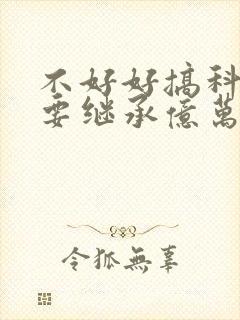 不好好搞科
要继承億萬
令狐無辜